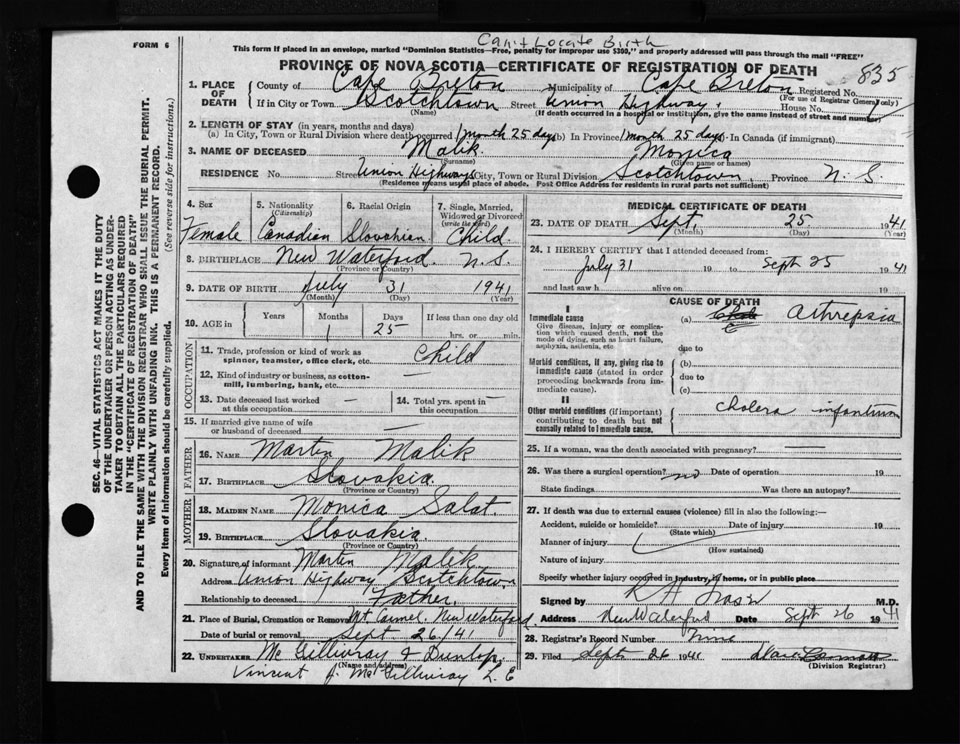 FORM 6
Can't Locate Birth
This form if placed in an envelope, marked "Dominion Statistics—Free, penalty for improper use $300," and properly addressed will pass through the mail "FREE"
PROVINCE OF NOVA SCOTIA—CERTIFICATE OF REGISTRATION OF DEATH
835
1. PLACE OF DEATH County of Cape Breton Municipality of Cape Breton Registered No.
(For use of Registrar General only)
If in City or Town Scotchtown Street Union Highway. House No.
(Name) (If death occurred in a hospital or institution, give the name instead of street and number)
2. LENGTH OF STAY (in years, months and days)
(a) In City, Town or Rural Division where death occurred 1 month 25 days (b) In Province 1 month 25 days In Canada (if immigrant)
3. NAME OF DECEASED Malik Monica
(Surname) (Given name or names)
RESIDENCE No. Street Union Highway City, Town or Rural Division Scotchtown, Province N. S.
(Residence means usual place of abode. Post Office Address for residents in rural parts not sufficient)
4. Sex Female
5. Nationality (Citizenship) Canadian
6. Racial Origin Slovakian
7. Single, Married, Widowed or Divorced (write the word) Child.
8. BIRTHPLACE New Waterford. N.S.
(Province or Country)
9. DATE OF BIRTH July 31 1941
(Month) (Day) (Year)
10. AGE in Years Months Days If less than one day old
1 25 hrs. or min.
OCCUPATION
11. Trade, profession or kind of work as spinner, teamster, office clerk, etc. Child
12. Kind of industry or business, as cotton-mill, lumbering, bank, etc. —
13. Date deceased last worked at this occupation —
14. Total yrs. spent in this occupation —
15. If married give name of wife or husband of deceased —
FATHER
16. NAME Martin Malik
17. BIRTHPLACE Slovakia
(Province or Country)
MOTHER
18. MAIDEN NAME Monica Salat.
19. BIRTHPLACE Slovakia.
(Province or Country)
20. Signature of informant Martin Malik
Address Union Highway Scotchtown
Relationship to deceased Father.
21. Place of Burial, Cremation or Removal Mt Carmel. New Waterford
Date of burial or removal Sept 26/41
22. UNDERTAKER Mc Gillivray & Dunlop.
(Name and address)
Vincent J. Mc Gillivray L. E
MEDICAL CERTIFICATE OF DEATH
23. DATE OF DEATH Sept. 25 1941
(Month) (Day) (Year)
24. I HEREBY CERTIFY that I attended deceased from:
July 31 19 to Sept 25 1941
and last saw h alive on 19
CAUSE OF DEATH
I
Immediate cause
Give disease, injury or complication which caused death, not the mode of dying, such as heart failure, asphyxia, asthenia, etc.
(a) Athrepsia
due to
Morbid conditions, if any, giving rise to immediate cause (stated in order proceeding backwards from immediate cause).
(b)
due to
(c)
II
Other morbid conditions (if important) contributing to death but not causally related to immediate cause.
cholera infantum
25. If a woman, was the death associated with pregnancy?
26. Was there a surgical operation? no Date of operation 19
State findings Was there an autopsy?
27. If death was due to external causes (violence) fill in also the following:—
Accident, suicide or homicide? Date of injury 19
(State which)
Manner of injury
(How sustained)
Nature of injury
Specify whether injury occurred in industry, in home, or in public place
Signed by M.D.
Address New Waterford Date Sept 26 1941
28. Registrar's Record Number Nine
29. Filed Sept 26 1941
(Division Registrar)
SEC. 46—VITAL STATISTICS ACT MAKES IT THE DUTY
OF THE UNDERTAKER OR PERSON ACTING AS UNDER-
TAKER TO OBTAIN ALL THE PARTICULARS REQUIRED
IN THE "CERTIFICATE OF REGISTRATION OF DEATH"
AND TO FILE THE SAME WITH THE DIVISION REGISTRAR WHO SHALL ISSUE THE BURIAL PERMIT.
WRITE PLAINLY WITH UNFADING INK. THIS IS A PERMANENT RECORD.
Every item of information should be carefully supplied. (See reverse side for instructions.)